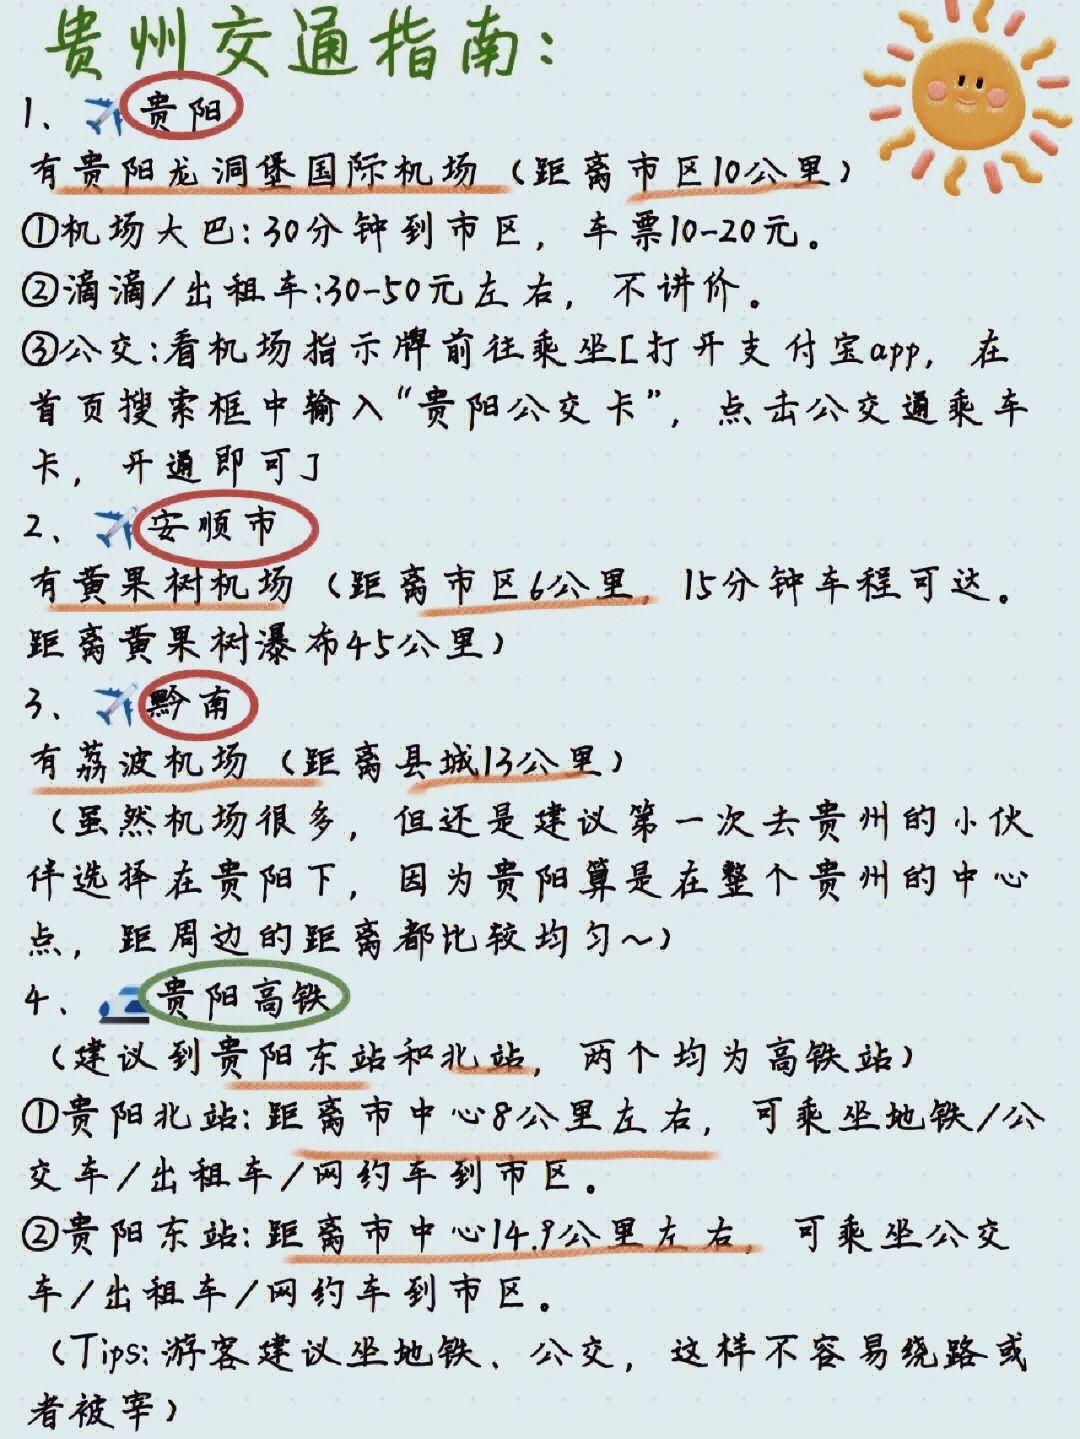 贵州交通指南:
1、贵阳
有贵阳龙洞堡国际机场（距离市区10公里）
①机场大巴:30分钟到市区，车票10-20元。
②滴滴/出租车:30-50元左右，不讲价。
③公交:看机场指示牌前往乘坐[打开支付宝app，在
首页搜索框中输入“贵阳公交卡”，点击公交通乘车
卡，开通即可]
2、安顺市
有黄果树机场（距离市区6公里，15分钟车程可达。
距离黄果树瀑布45公里）
3、黔南
有荔波机场（距离县城13公里）
（虽然机场很多，但还是建议第一次去贵州的小伙
伴选择在贵阳下，因为贵阳算是在整个贵州的中心
点，距周边的距离都比较均匀~）
4、贵阳高铁
（建议到贵阳东站和北站，两个均为高铁站）
①贵阳北站:距离市中心8公里左右，可乘坐地铁/公
交车/出租车/网约车到市区。
②贵阳东站:距离市中心14.9公里左右，可乘坐公交
车/出租车/网约车到市区。
（Tips:游客建议坐地铁、公交，这样不容易绕路或
者被宰）